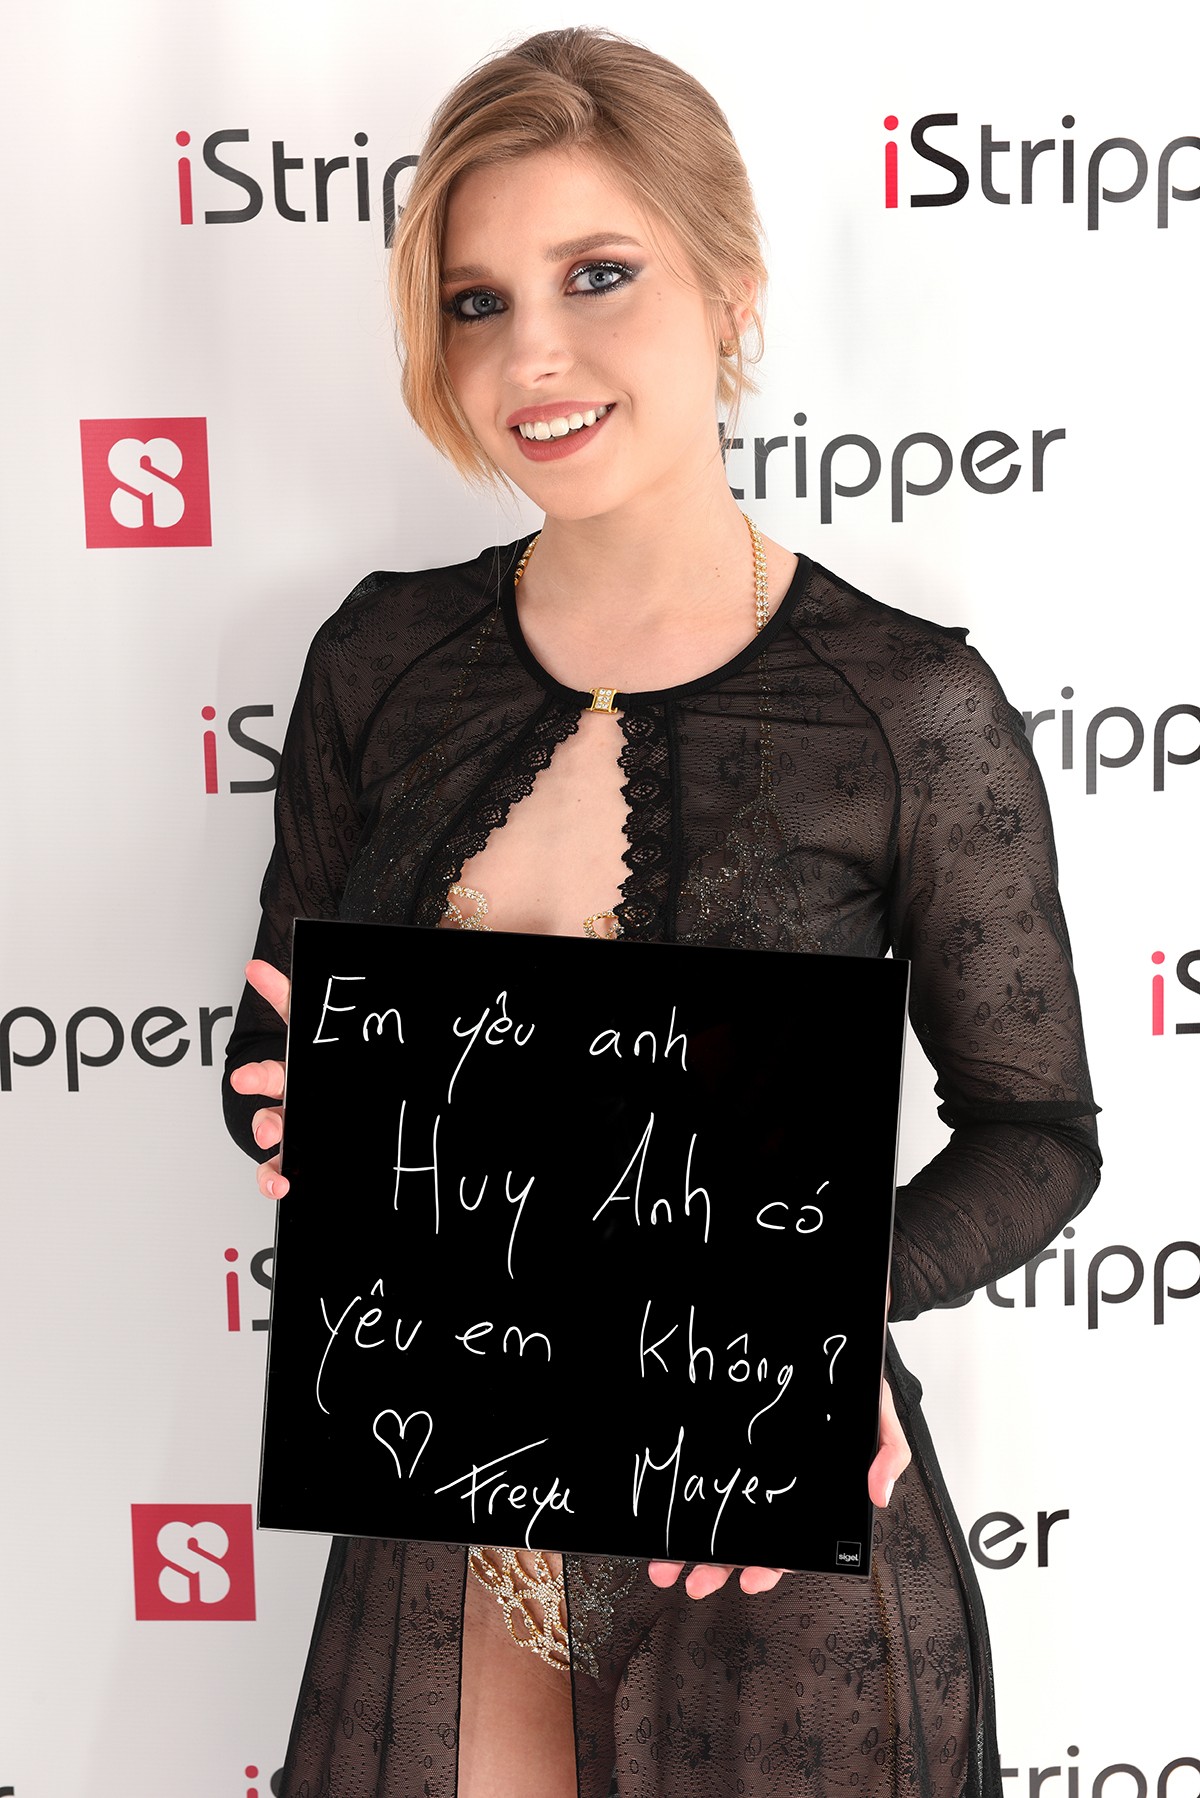 iStrip
iStripp
S
tripper
iS
ripp
iS
pper
Em yêu anh
Huy Anh có
yêu em không?
♡ Freya Mayer
sigel
iS
Stripp
S
er
tripp